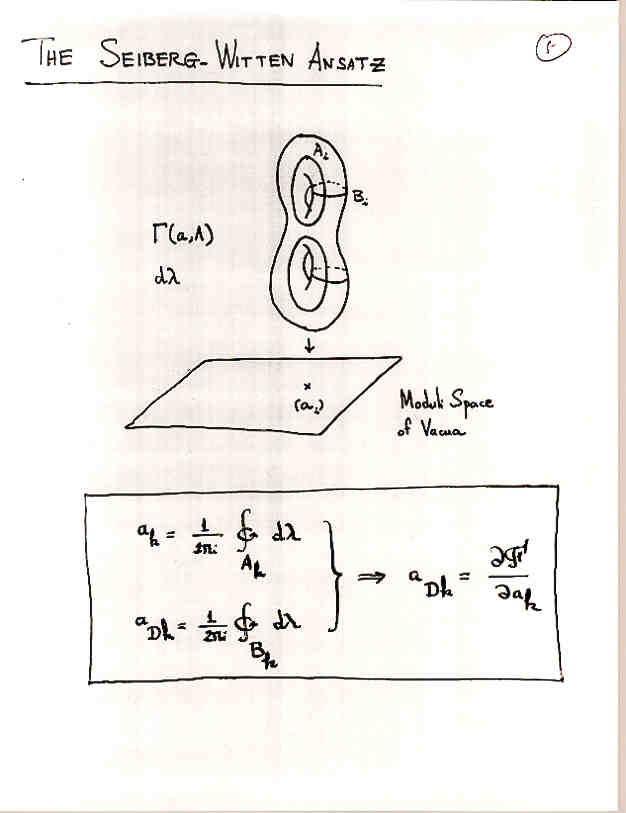 THE SEIBERG-WITTEN ANSATZ
A_i
B_i
Γ(a,Λ)
dλ
(a_i)
Moduli Space
of Vacua
a_k = 1/2πi ∮_{A_k} dλ
a_{Dk} = 1/2πi ∮_{B_k} dλ
⟹ a_{Dk} = ∂ℱ/∂a_k